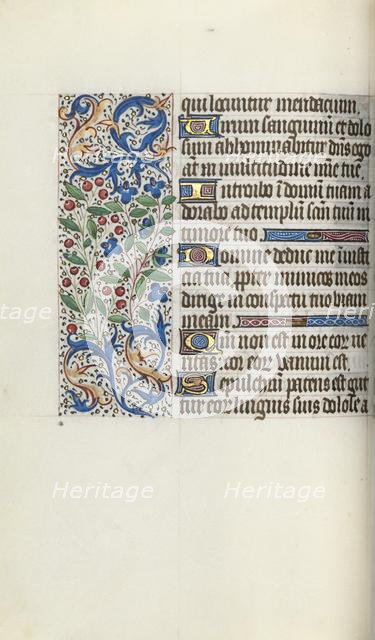 qui locuntur mendacium
Uirum sanguinum et dolo
sum abhominabitur dn̄s ego
aūt ī multitudine mīe tue
Introibo ī domum tuam a
dorabo ad templū sanctū tuū in
timore tuo
Domine deduc me ī iusti
cia tua ꝓpter inimicos meos
dirige in conspectu tuo uiam
meam
Qm̄ non est in ore eor ue
ritas cor eor uanum est
Sepulchrū patens est gut
tur eor linguis suis dolose a
Heritage
Heritage
Heritage
Heritage